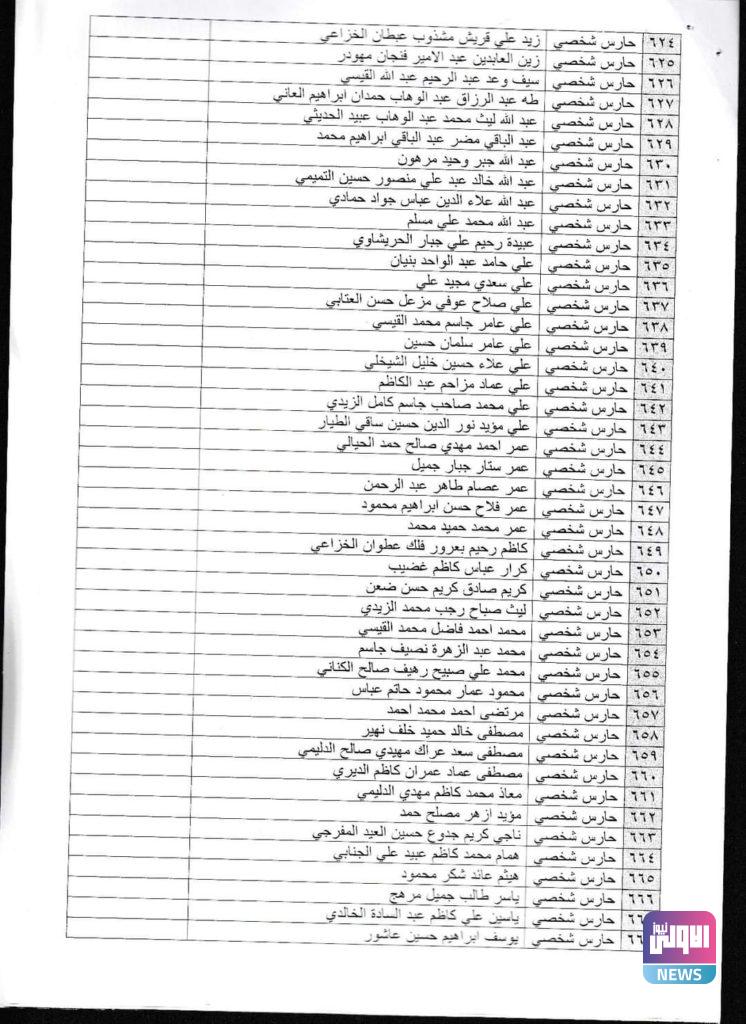 ٦٢٤ حارس شخصي زيد علي قريش مشذوب عبطان الخزاعي
٦٢٥ حارس شخصي زين العابدين عبد الامير فنجان مهودر
٦٢٦ حارس شخصي سيف وعد عبد الرحيم عبد الله القيسي
٦٢٧ حارس شخصي طه عبد الرزاق عبد الوهاب حمدان ابراهيم العاني
٦٢٨ حارس شخصي عبد الله ليث محمد عبد الوهاب عبيد الحديثي
٦٢٩ حارس شخصي عبد الباقي مضر عبد الباقي ابراهيم محمد
٦٣٠ حارس شخصي عبد الله جبر وحيد مرهون
٦٣١ حارس شخصي عبد الله خالد عبد علي منصور حسين التميمي
٦٣٢ حارس شخصي عبد الله علاء الدين عباس جواد حمادي
٦٣٣ حارس شخصي عبد الله محمد علي مسلم
٦٣٤ حارس شخصي عبيدة رحيم علي جبار الحريشاوي
٦٣٥ حارس شخصي علي حامد عبد الواحد بنيان
٦٣٦ حارس شخصي علي سعدي مجيد علي
٦٣٧ حارس شخصي علي صلاح عوفي مزعل حسن العتابي
٦٣٨ حارس شخصي علي عامر جاسم محمد القيسي
٦٣٩ حارس شخصي علي عامر سلمان حسين
٦٤٠ حارس شخصي علي علاء حسين خليل الشيخلي
٦٤١ حارس شخصي علي عماد مزاحم عبد الكاظم
٦٤٢ حارس شخصي علي محمد صاحب جاسم كامل الزيدي
٦٤٣ حارس شخصي علي مؤيد نور الدين حسين ساقي الطيار
٦٤٤ حارس شخصي عمر احمد مهدي صالح حمد الحيالي
٦٤٥ حارس شخصي عمر ستار جبار جميل
٦٤٦ حارس شخصي عمر عصام طاهر عبد الرحمن
٦٤٧ حارس شخصي عمر فلاح حسن ابراهيم محمود
٦٤٨ حارس شخصي عمر محمد حميد محمد
٦٤٩ حارس شخصي كاظم رحيم بعرور فلك عطوان الخزاعي
٦٥٠ حارس شخصي كرار عباس كاظم غضيب
٦٥١ حارس شخصي كريم صادق كريم حسن ضعن
٦٥٢ حارس شخصي ليث صباح رجب محمد الزيدي
٦٥٣ حارس شخصي محمد احمد فاضل محمد القيسي
٦٥٤ حارس شخصي محمد عبد الزهرة نصيف جاسم
٦٥٥ حارس شخصي محمد علي صبيح رهيف صالح الكناني
٦٥٦ حارس شخصي محمود عمار محمود حاتم عباس
٦٥٧ حارس شخصي مرتضى احمد محمد احمد
٦٥٨ حارس شخصي مصطفى خالد حميد خلف نهير
٦٥٩ حارس شخصي مصطفى سعد عراك مهيدي صالح الدليمي
٦٦٠ حارس شخصي مصطفى عماد عمران كاظم الديري
٦٦١ حارس شخصي معاذ محمد كاظم مهدي الدليمي
٦٦٢ حارس شخصي مؤيد ازهر مصلح حمد
٦٦٣ حارس شخصي ناجي كريم جدوع حسين العيد المفرجي
٦٦٤ حارس شخصي همام محمد كاظم عبيد علي الجنابي
٦٦٥ حارس شخصي هيثم عائد شكر محمود
٦٦٦ حارس شخصي ياسر طالب جميل مرهج
حارس شخصي ياسين علي كاظم عبد السادة الخالدي
حارس شخصي يوسف ابراهيم حسين عاشور
الاولى نيوز
NEWS